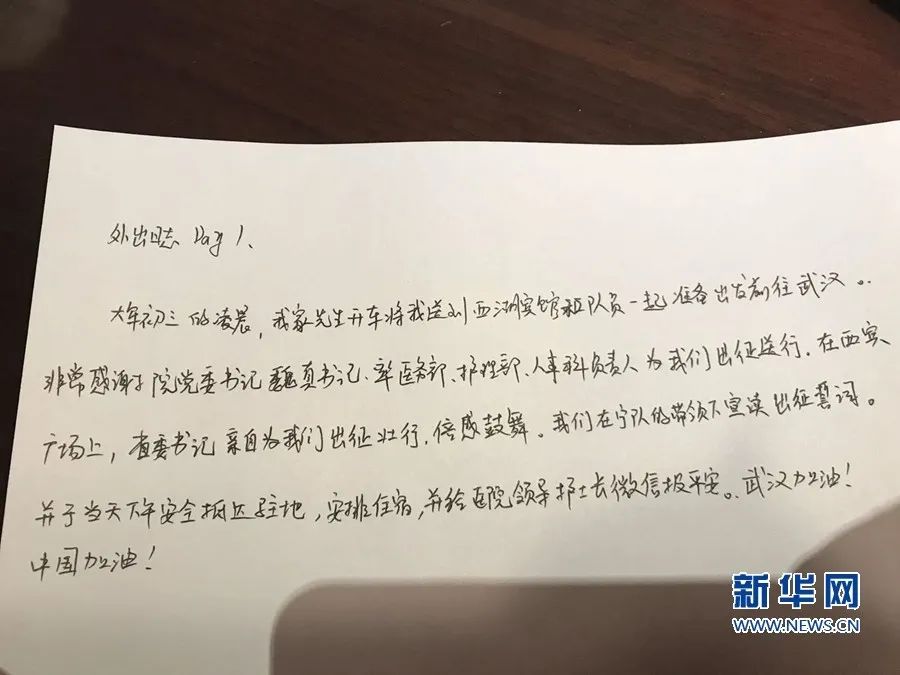 外出日志 Day 1、
大年初三的凌晨,我家先生开车将我送到西湖宾馆和队员一起准备出发前往武汉。.
非常感谢于院党委书记魏真书记、率医务部、护理部、人事科负责人为我们出征送行.在西宾
广场上,省委书记亲自为我们出征壮行.倍感鼓舞。我们在宁队的带领下宣读出征誓词。
并于当天下午安全抵达驻地,安排住宿,并给医院领导护士长微信报平安。.武汉加油!
中国加油!
新华网
WWW.NEWS.CN